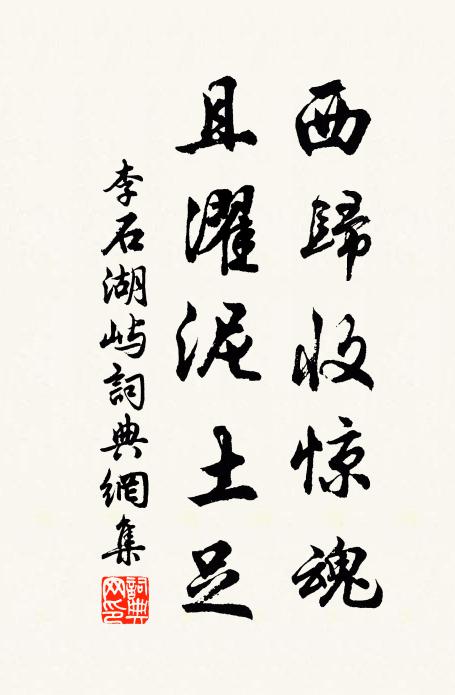 西歸收惊魂
且濯泥土足
李石湖屿詞典網集
詞典网印